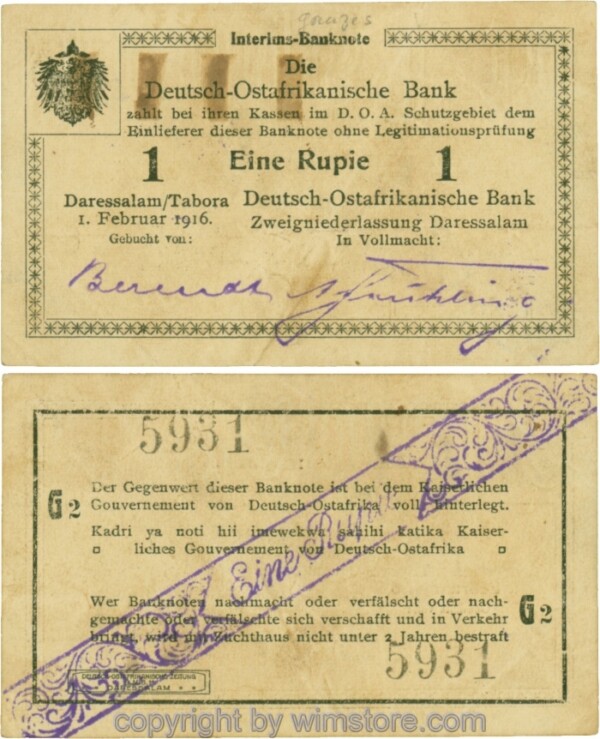 Interims-Banknote
Die
Deutsch-Ostafrikanische Bank
zahlt bei ihren Kassen im D. O. A. Schutzgebiet dem
Einlieferer dieser Banknote ohne Legitimationsprüfung
1 Eine Rupie 1
Daressalam/Tabora
1. Februar 1916.
Gebucht von:
Deutsch-Ostafrikanische Bank
Zweigniederlassung Daressalam
In Vollmacht:
Berendt
5931
G2
Der Gegenwert dieser Banknote ist bei dem Kaiserlichen
Gouvernement von Deutsch-Ostafrika voll hinterlegt.
Kadri ya noti hii imewekwa sahihi katika Kaiser-
liches Gouvernement von Deutsch-Ostafrika
Eine Rupie
Wer Banknoten nachmacht oder verfälscht oder nach-
gemachte oder verfälschte sich verschafft und in Verkehr
bringt, wird mit Zuchthaus nicht unter 2 Jahren bestraft
G2
5931
DARESSALAM
copyright by wimstore.com